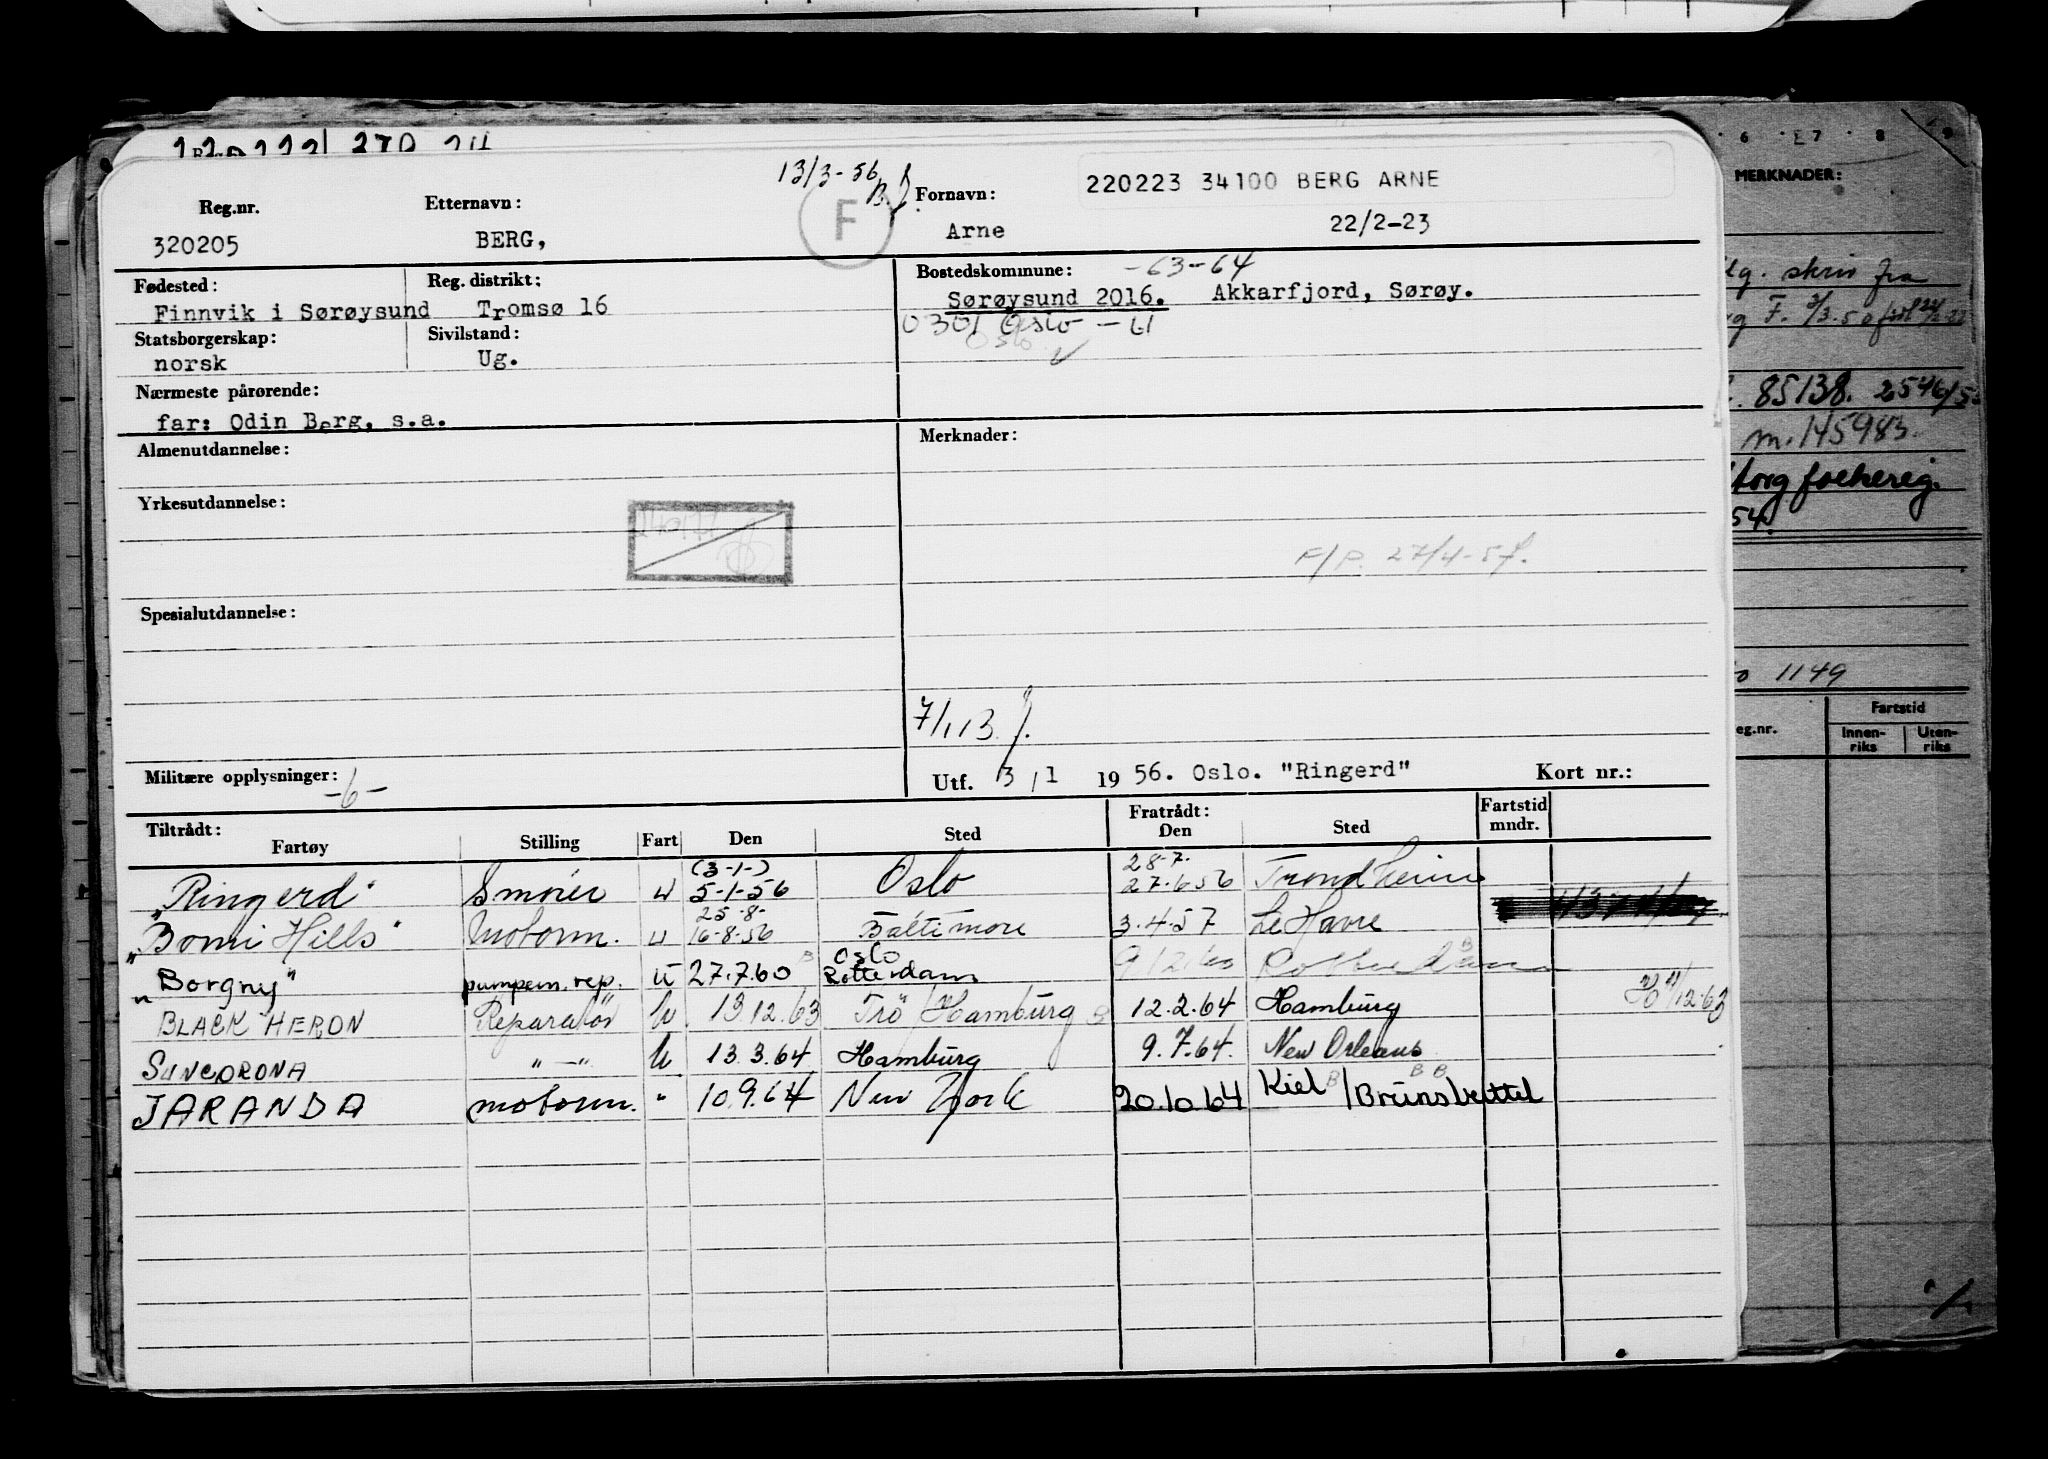 13/3-56
220223 34100 BERG ARNE
Reg.nr. Etternavn: F Fornavn:
320205 BERG, Arne 22/2-23
Fødested: Reg. distrikt: Bostedskommune: -63-64
Finnvik i Sørøysund Tromsø 16 Sørøysund 2016. Akkarfjord, Sørøy.
0301 Oslo -61
Oslo
Statsborgerskap: Sivilstand:
norsk Ug.
Nærmeste pårørende:
far: Odin Berg, s.a.
Almenutdannelse: Merknader:
Yrkesutdannelse:
F/P. 27/4-57.
Spesialutdannelse:
7/113
Militære opplysninger: -6- Utf. 3/1 1956. Oslo. "Ringerd" Kort nr.:
Tiltrådt: Fratrådt: Fartstid
Fartøy Stilling Fart Den Sted Den Sted mndr.
(3-1-) 28-7-
"Ringerd" Smører u 5-1-56 Oslo 27.6.56 Trondheim
25-8-
"Bomi Hills" Motorm. u 16-8-56 Baltimore 3.4.57 Le Havre
Oslo
"Borgny" pumpem. rep. u 27.7.60 Rotterdam 9 12 60 Rotterdam
BLACK HERON Reparatør u 13 12.63 Trö/Hamburg 12.2.64 Hamburg
SUNCORONA "—" u 13.3.64 Hamburg 9.7.64. New Orleans
JARANDA motorm. " 10.9.64 New York 20.10.64 Kiel/Brünsbüttel
6 7 8 9
MERKNADER:
skriv fra
85138. 2546/5
m. 145983.
54.
1149
eg.nr. Fartstid
Innen-riks Uten-riks